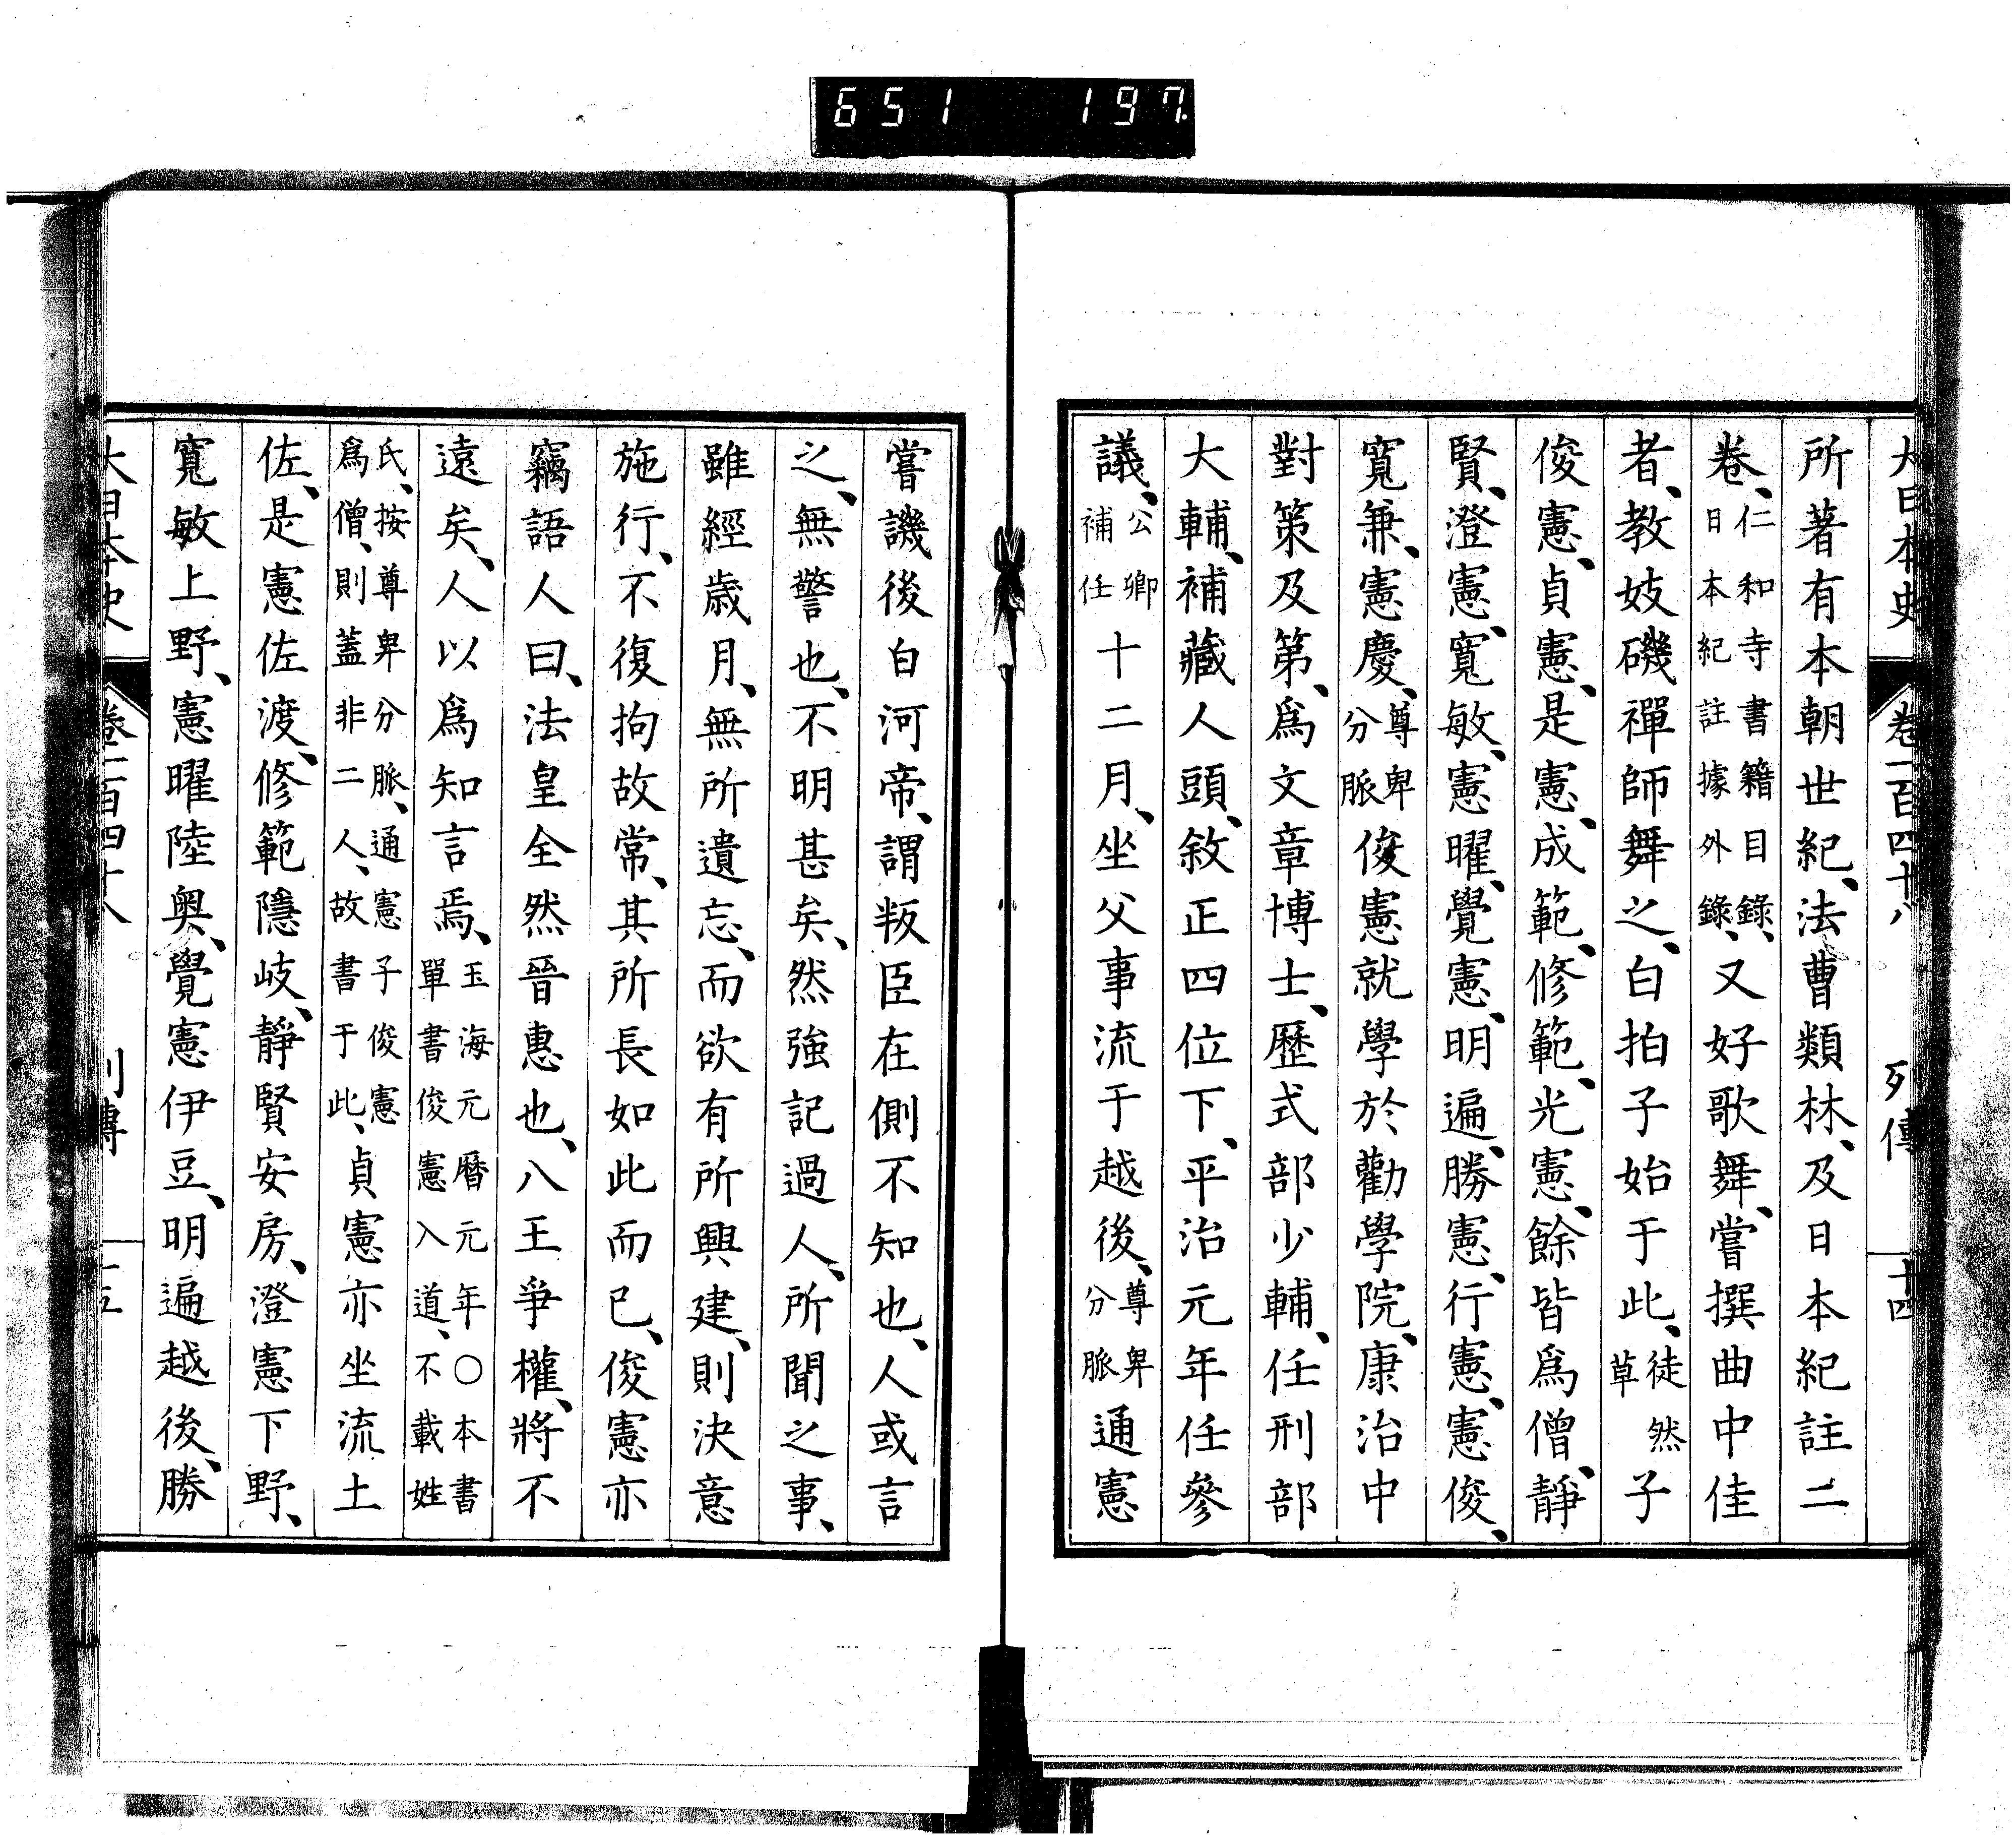 651 197
大日本史 卷一百四十八 列傳 十四
所著有本朝世紀、法曹類林、及日本紀註二
卷、仁和寺書籍目錄、日本紀註據外錄、又好歌舞、嘗撰曲中佳
者、教妓磯禪師舞之、白拍子始于此、徒然草子
俊憲、貞憲、是憲、成範、修範、光憲、餘皆爲僧、靜
賢、澄憲、寬敏、憲曜、覺憲、明遍、勝憲、行憲、憲俊、
寬兼、憲慶、尊卑分脈俊憲就學於勸學院、康治中
對策及第、爲文章博士、歷式部少輔、任刑部
大輔、補藏人頭、敘正四位下、平治元年任參
議、公卿補任十二月、坐父事流于越後、尊卑分脈通憲
嘗譏後白河帝、謂叛臣在側不知也、人或言
之、無警也、不明甚矣、然強記過人、所聞之事、
雖經歲月、無所遺忘、而欲有所興建、則決意
施行、不復拘故常、其所長如此而已、俊憲亦
竊語人曰、法皇全然晉惠也、八王爭權、將不
遠矣、人以爲知言焉、玉海元曆元年〇本書單書俊憲入道、不載姓
氏、按尊卑分脈、通憲子俊憲爲僧、則蓋非二人、故書于此、貞憲亦坐流土
佐、是憲佐渡、修範隱岐、靜賢安房、澄憲下野、
寬敏上野、憲曜陸奧、覺憲伊豆、明遍越後、勝
大日本史 卷一百四十八 列傳 十五